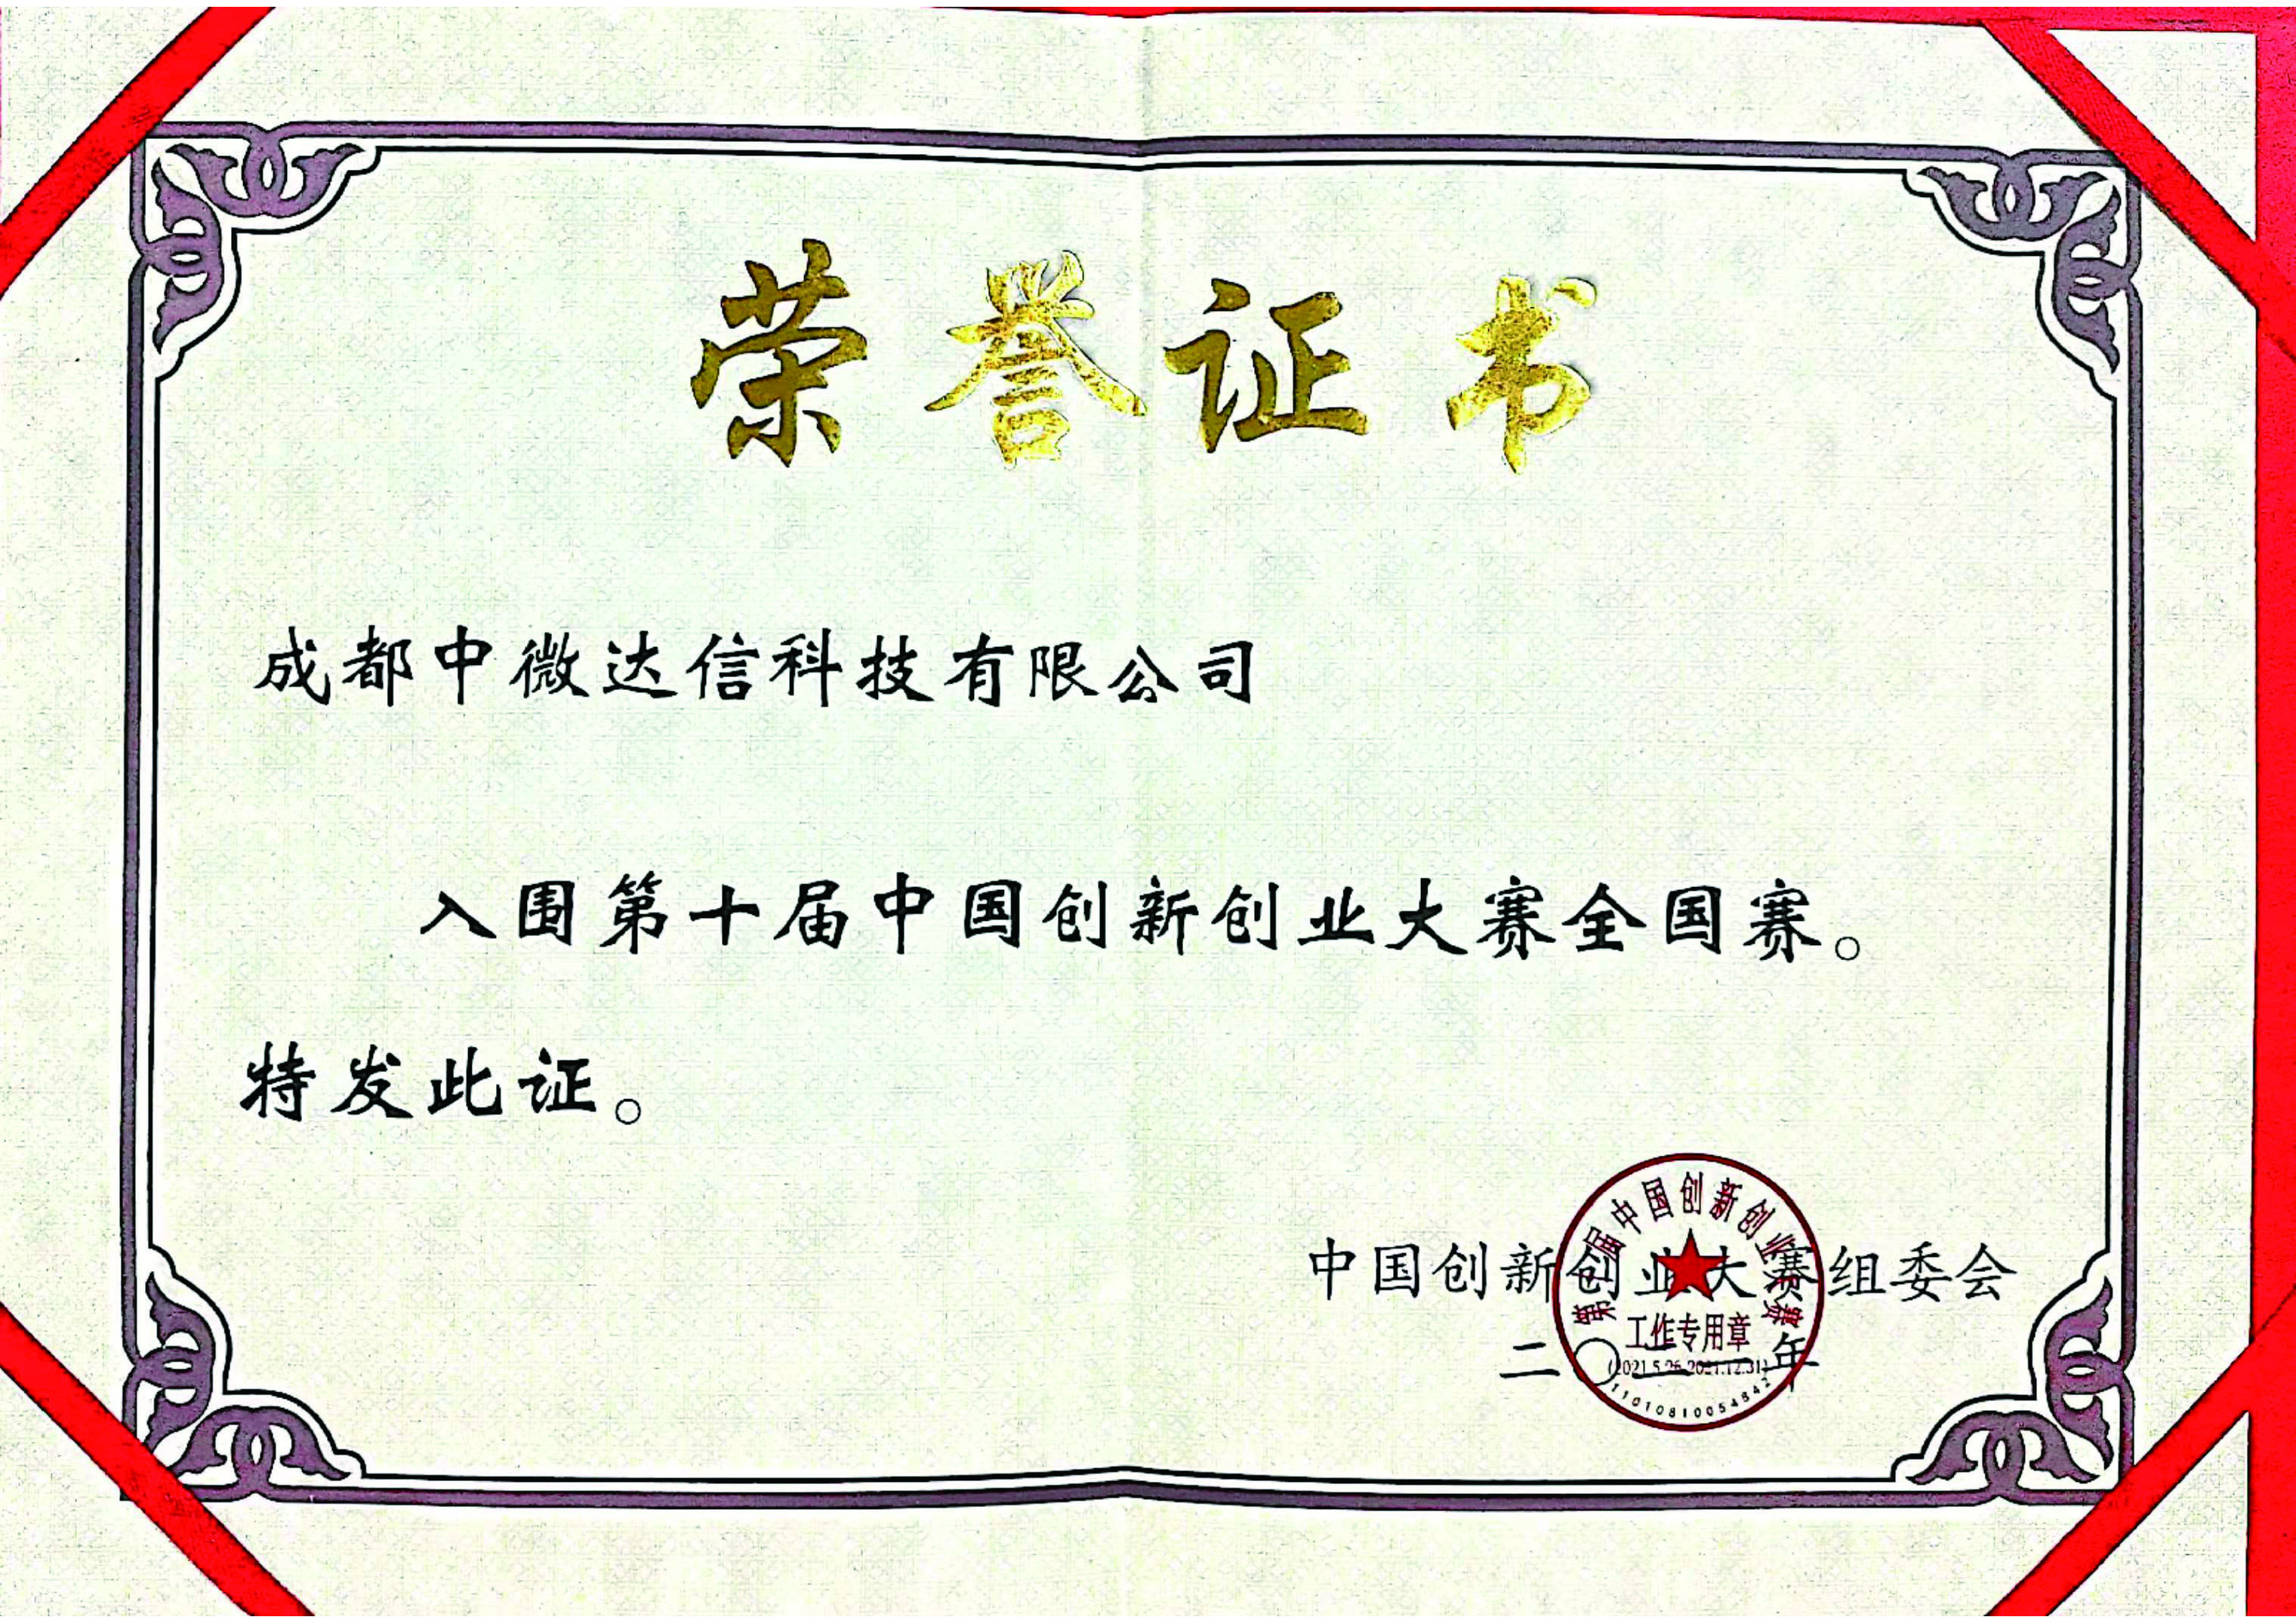 荣誉证书
成都中微达信科技有限公司
入围第十届中国创新创业大赛全国赛。
特发此证。
中国创新创业大赛组委会
二〇二一年
第十届中国创新创业大赛
工作专用章
(2021.5.26-2021.12.31)
11010810054842